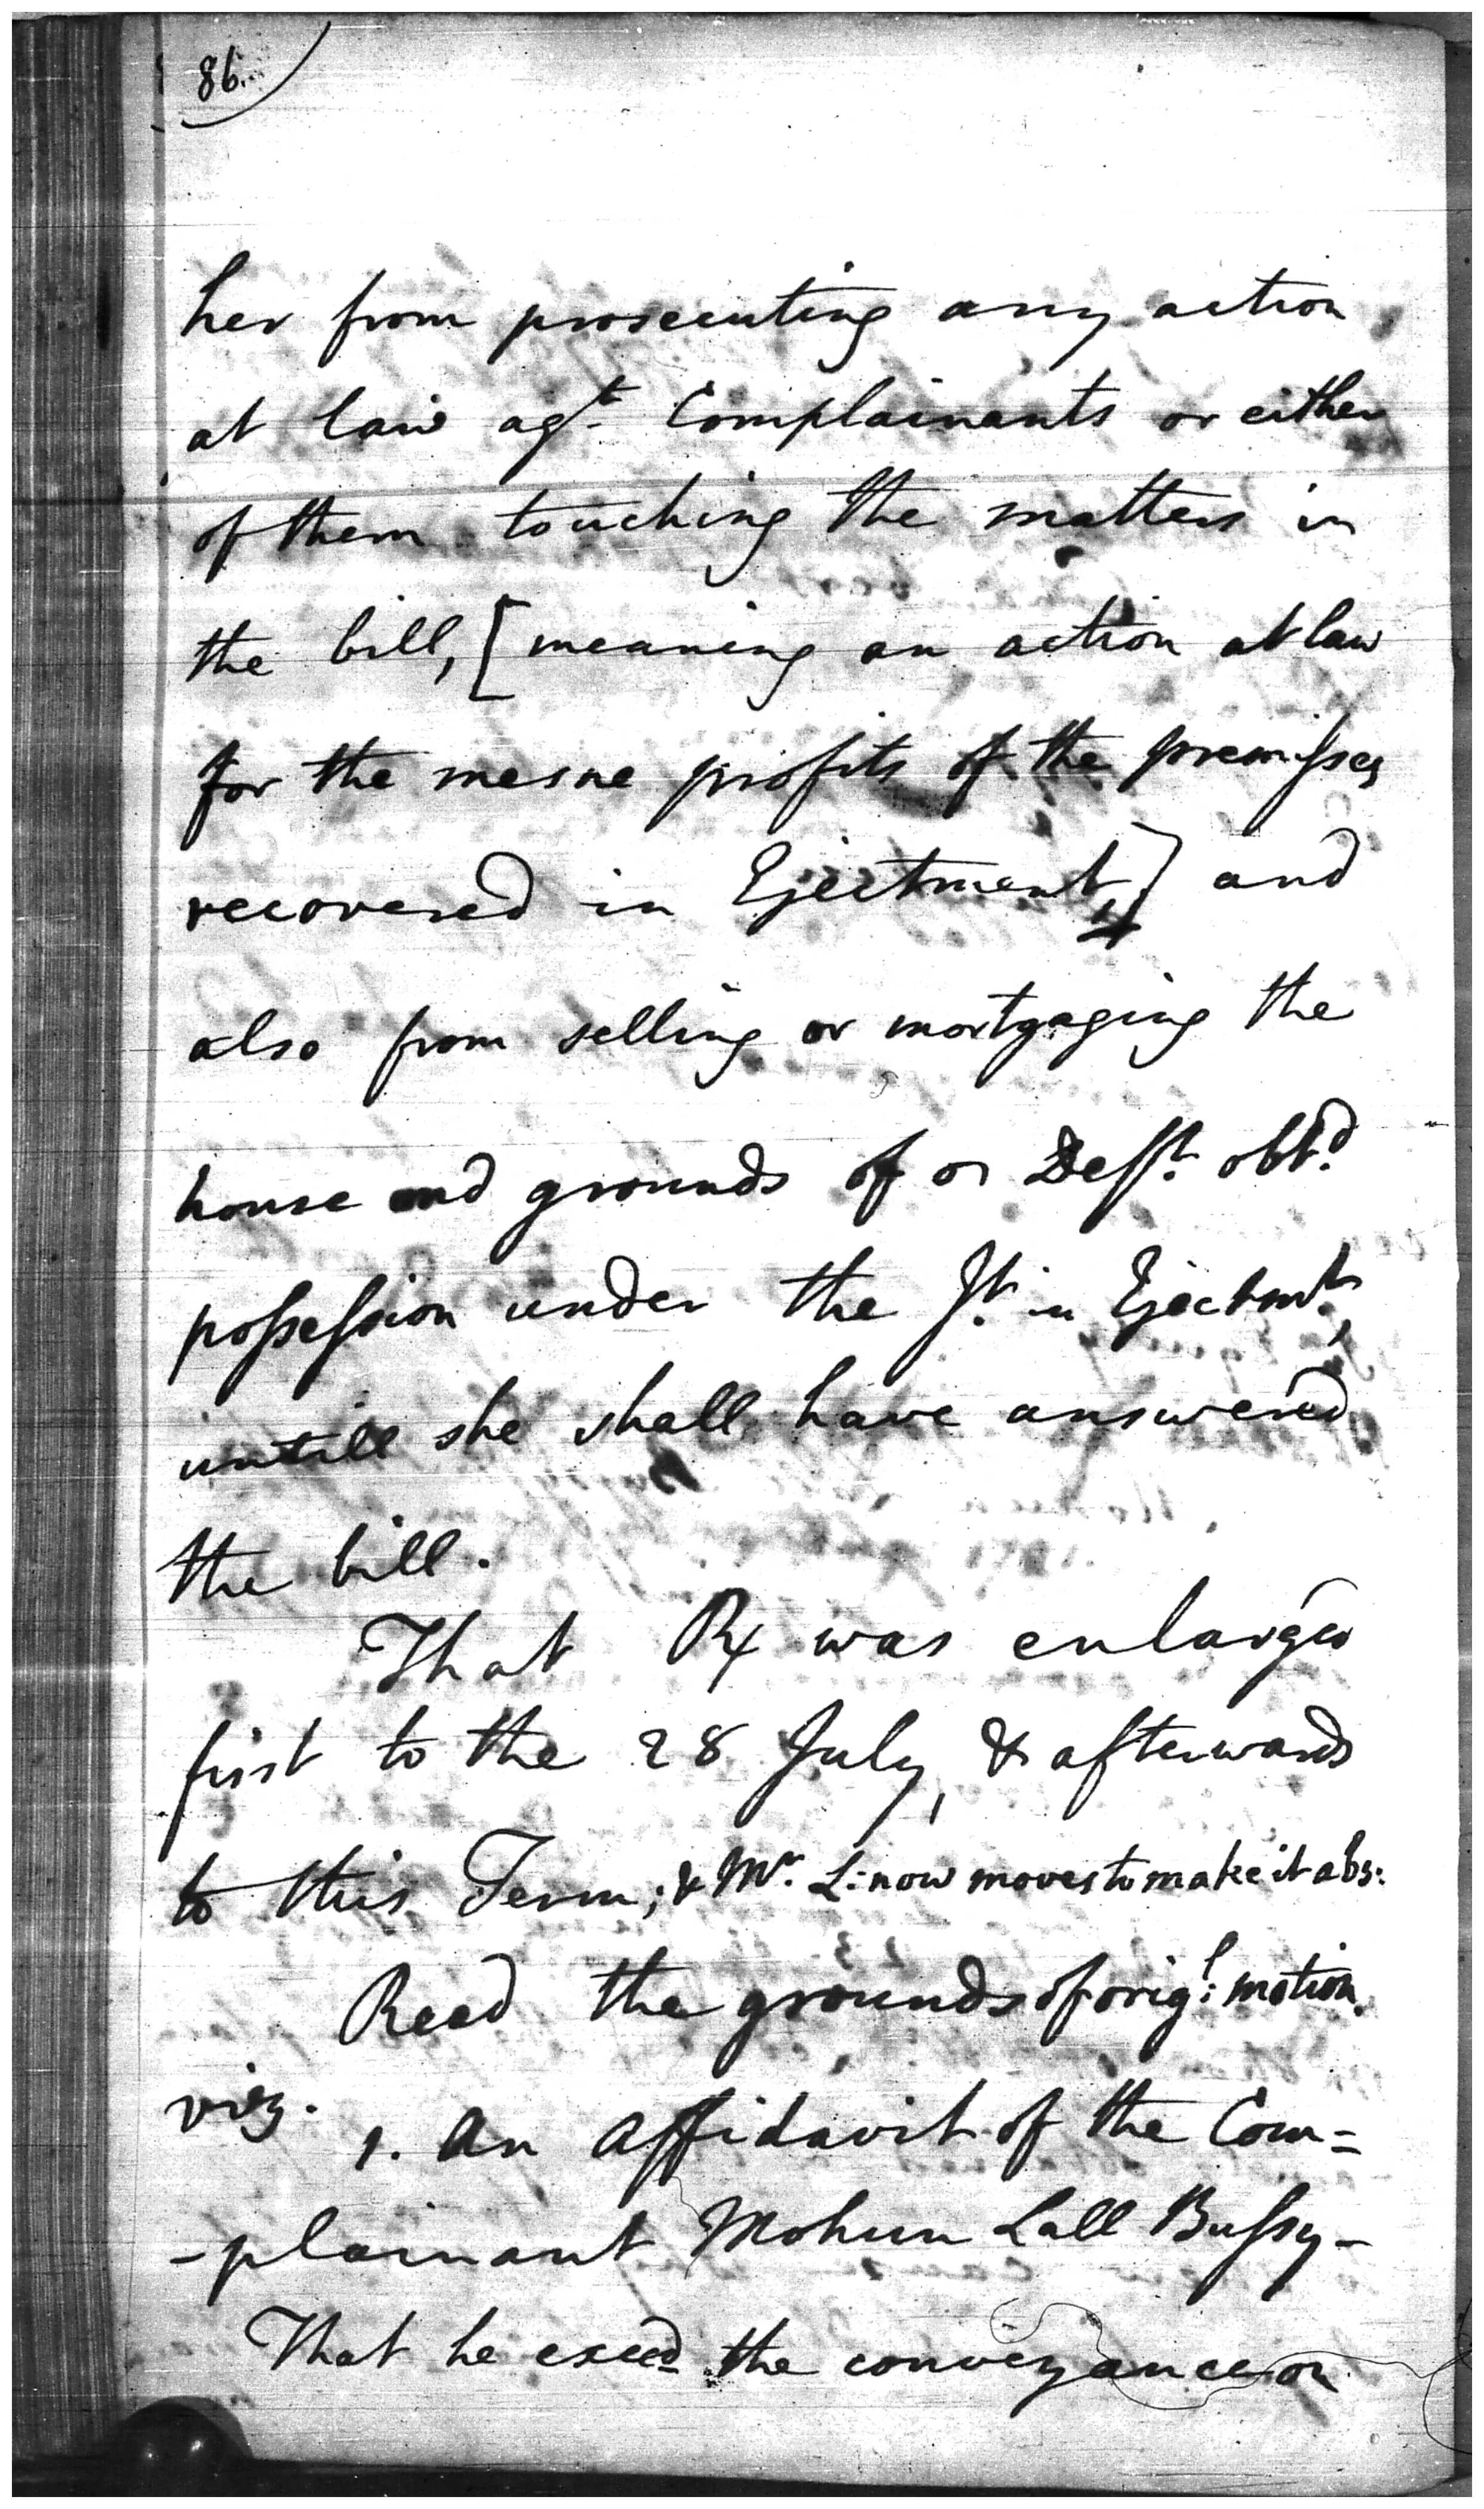 86.
her from prosecuting any action
at law agt. Complainants or either
of them touching the matters in
the bill, [meaning an action at law
for the mesne profits of the premisses
recovered in Ejectment,] and
also from selling or mortgaging the
house and grounds of or Defft. obtd.
possession under the Jt. in Ejectmt.,
untill she shall have answered
the bill.
That Rx was enlarged
first to the 28 July, & afterwards
to this Term; & Mr. L: now moves to make it abs:
Reed the grounds of origl: motion.
viz. 1. An Affidavit of the Com=
-plainant Mohun Lall Bussy-
That he exeed the conveyance on